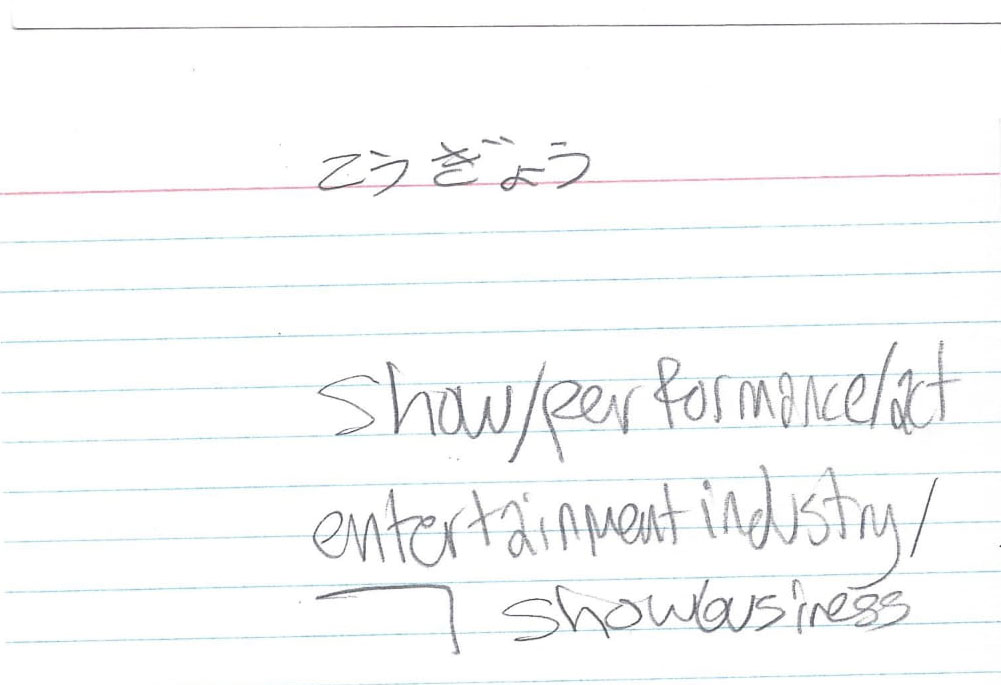 こうぎょう
show/performance/act
entertainment industry/
showbusiness